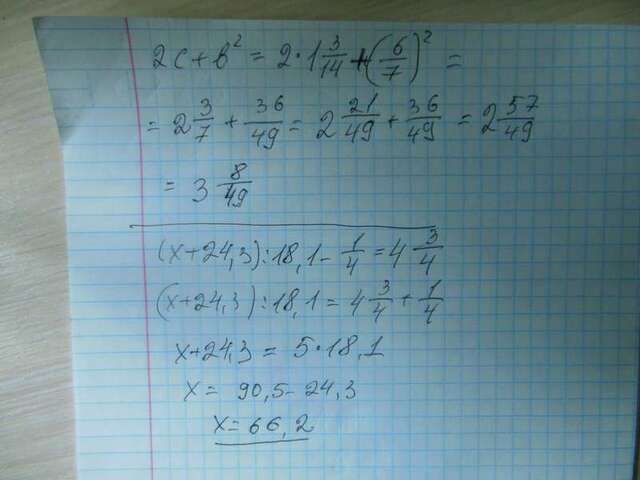 2c + b² = 2·1 3/14 + (6/7)² =
= 2 3/7 + 36/49 = 2 21/49 + 36/49 = 2 57/49
= 3 8/49
(x+24,3):18,1 - 1/4 = 4 3/4
(x+24,3):18,1 = 4 3/4 + 1/4
x+24,3 = 5·18,1
x = 90,5-24,3
x = 66,2